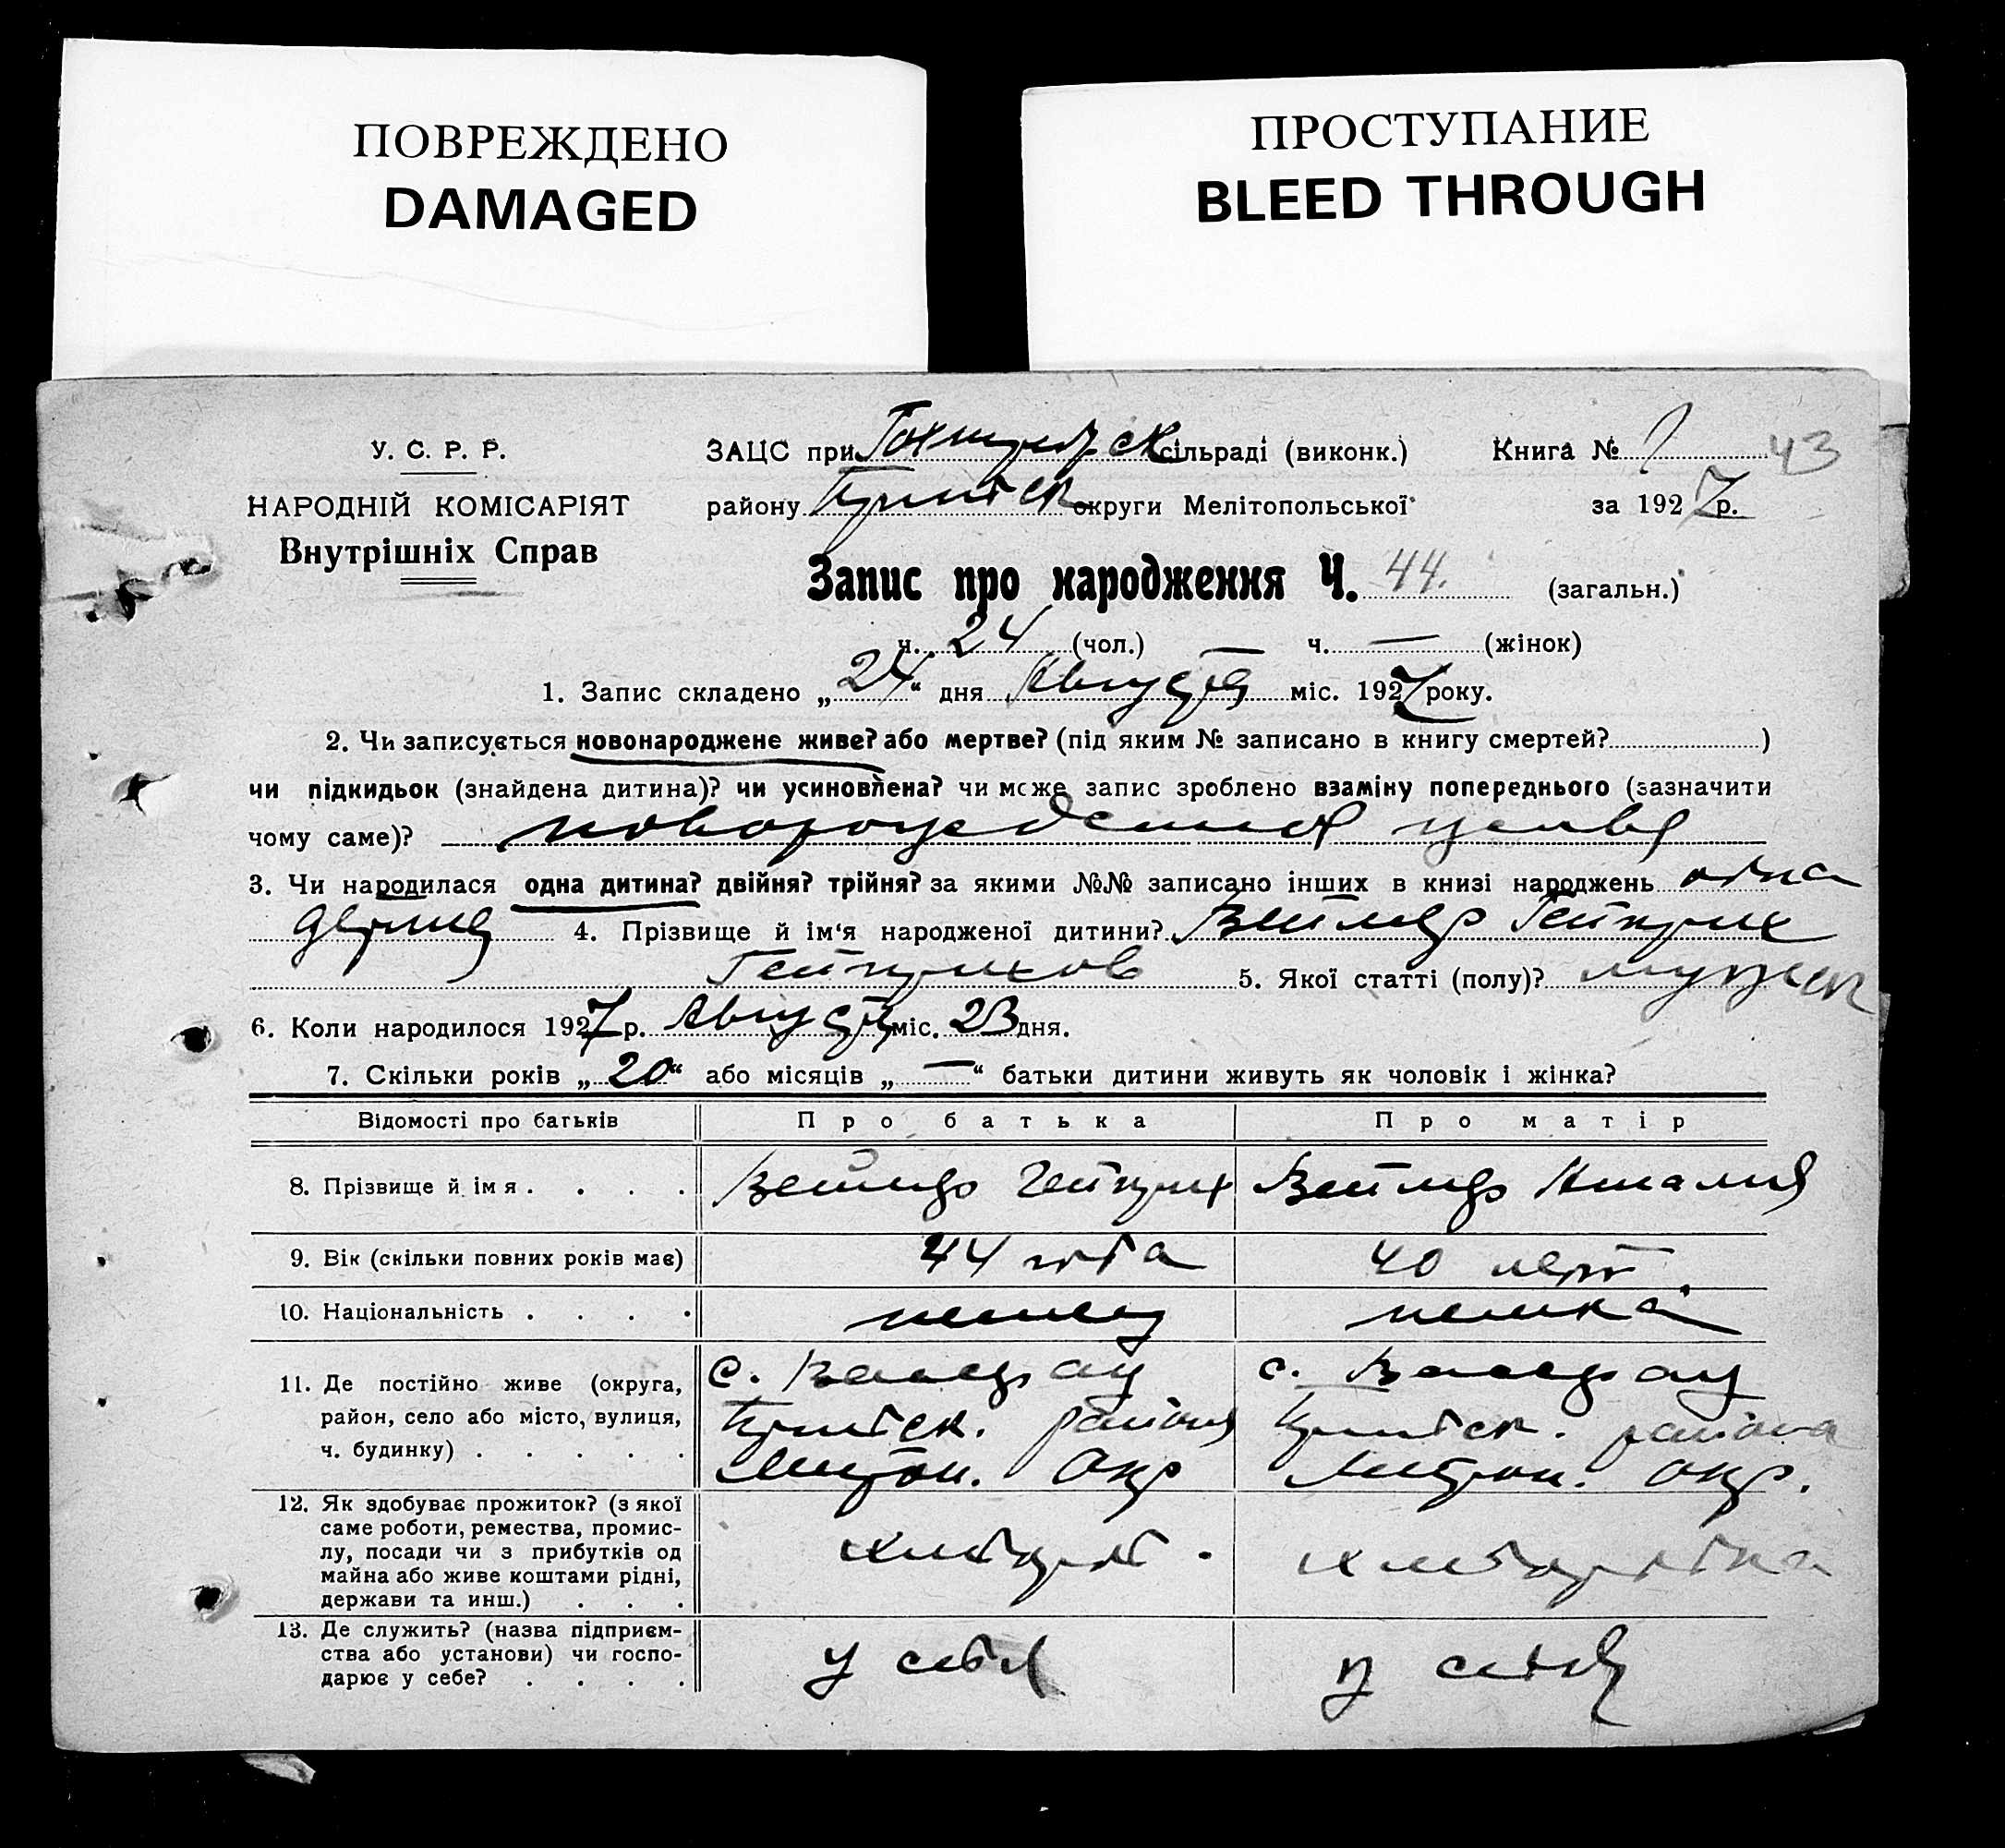 ПОВРЕЖДЕНО
DAMAGED
ПРОСТУПАНИЕ
BLEED THROUGH
У. С. Р. Р.
НАРОДНІЙ КОМІСАРІЯТ
Внутрішніх Справ
ЗАЦС при сільраді (виконк.) Книга № 43
району округи Мелітопольської за 1927 р.
Запис про народження Ч. 44. (загальн.)
ч. 24 (чол.) ч. — (жінок)
1. Запис складено „24“ дня Августа міс. 1927 року.
2. Чи записується новонароджене живе? або мертве? (під яким № записано в книгу смертей? )
чи підкидьок (знайдена дитина)? чи усиновлена? чи може запис зроблено взаміну попереднього (зазначити
чому саме)?
3. Чи народилася одна дитина? двійня? трійня? за якими №№ записано інших в книзі народжень
4. Прізвище й ім‘я народженої дитини? Вейлер Гейнрих
Гейнрихов 5. Якої статті (полу)? мужск
6. Коли народилося 1927 р. Августа міс. 23 дня.
7. Скільки років „20“ або місяців „—“ батьки дитини живуть як чоловік і жінка?
Відомості про батьків Про батька Про матір
8. Прізвище й імя . . . . Вейлер Гейнрих Вейлер
9. Вік (скільки повних років має) 44 года 40 лет.
10. Національність . . . . немец немка
11. Де постійно живе (округа, с. Вальдгау с. Вальдгау
район, село або місто, вулиця, района района
ч. будинку) . . . . . Окр Окр.
12. Як здобуває прожиток? (з якої
саме роботи, ремества, промис-
лу, посади чи з прибутків од
майна або живе коштами рідні,
держави та инш.) . . .
13. Де служить? (назва підприєм-
ства або установи) чи госпо- у себя у себя
дарює у себе? . . . .